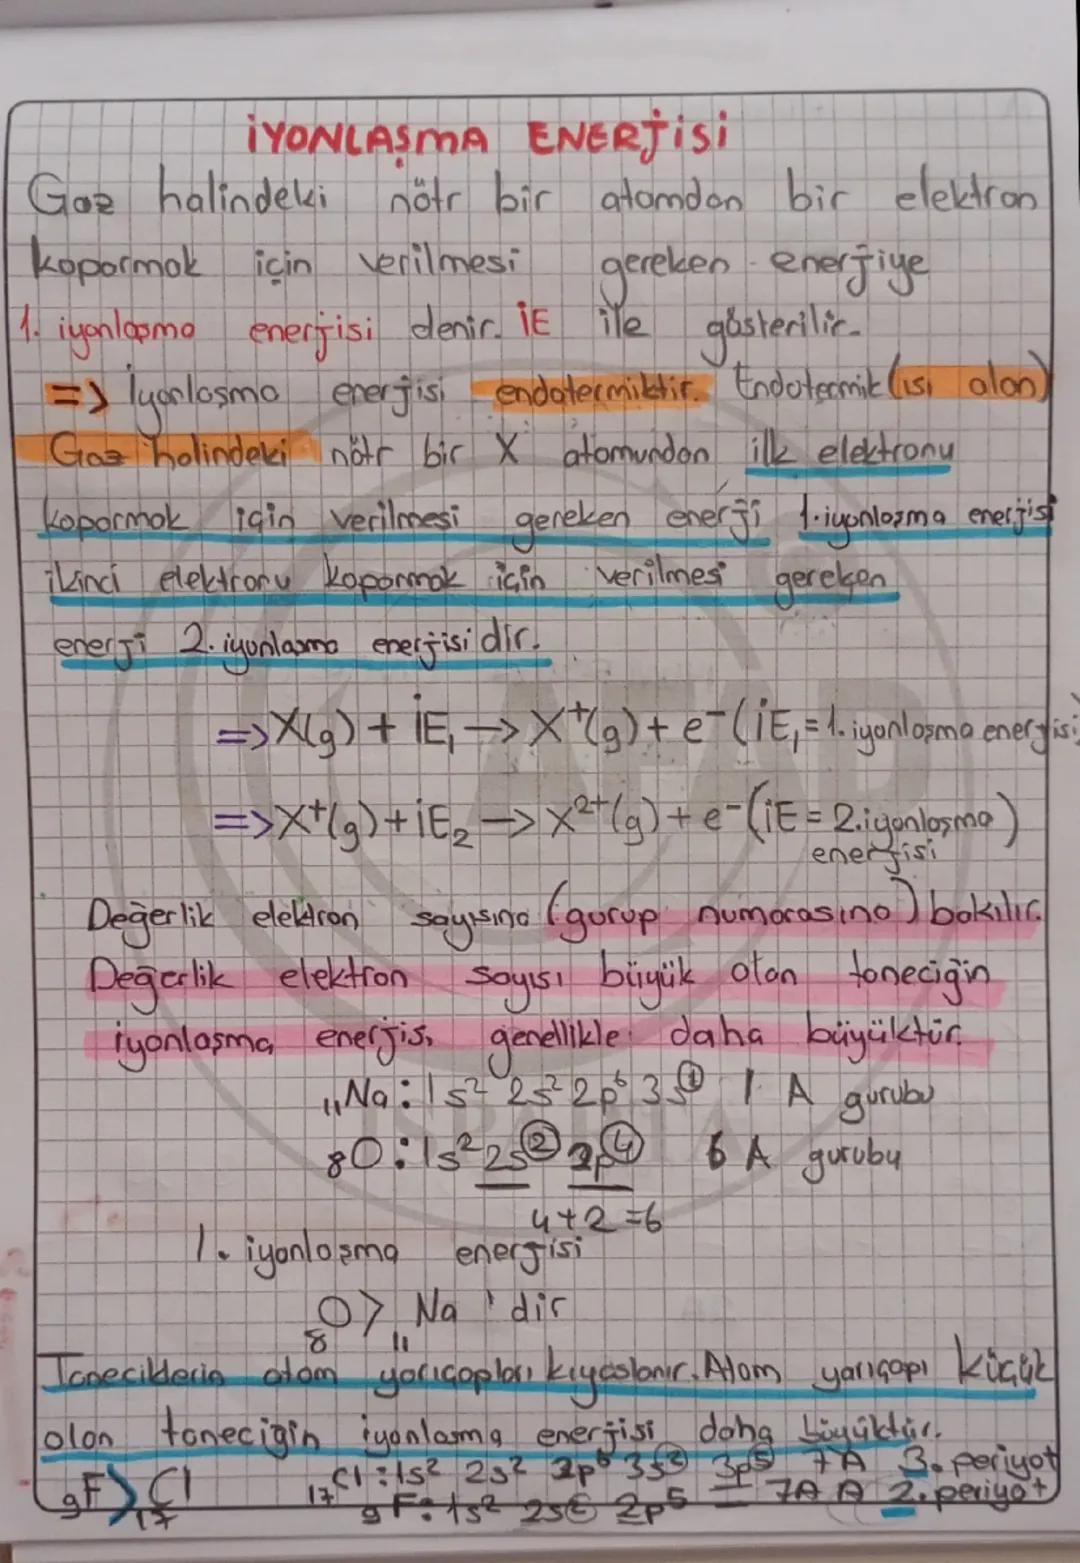 İYONLAŞMA ENERJİSİ
Gaz halindeki nötr bir atomdan bir elektron
koparmak için verilmesi gereken enerjiye
1. iyonlaşma enerjisi denir. İE ile gösterilir.
=> İyonlaşma enerjisi endotermiktir. Endotermik (ısı alan)
Gaz halindeki nötr bir X atomundan ilk elektronu
koparmak için verilmesi gereken enerji 1.iyonlaşma enerjisi
ikinci elektronu koparmak için verilmesi gereken
enerji 2.iyonlaşma enerjisidir.
=> X(g) + İE₁ → X⁺(g) + e⁻ (İE₁ = 1. iyonlaşma enerjisi)
=> X⁺(g) + İE₂ → X²⁺(g) + e⁻ (İE = 2.iyonlaşma
enerjisi)
Değerlik elektron sayısına (gurup numarasına) bakılır.
Değerlik elektron sayısı büyük olan taneciğin
iyonlaşma enerjisi genellikle daha büyüktür.
₁₁Na : 1s² 2s² 2p⁶ 3s¹ 1 A gurubu
₈O : 1s² 2s² 2p⁴ 6 A gurubu
4+2=6
1. iyonlaşma enerjisi
₈O > ₁₁Na 'dir
Taneciklerin atom yarıçapları kıyaslanır. Atom yarıçapı küçük
olan taneciğin iyonlaşma enerjisi daha büyüktür.
₉F > ₁₇Cl ₁₇Cl : 1s² 2s² 2p⁶ 3s² 3p⁵ 7A 3. periyot
₉F : 1s² 2s² 2p⁵ 7A A 2. periyot
AFAD